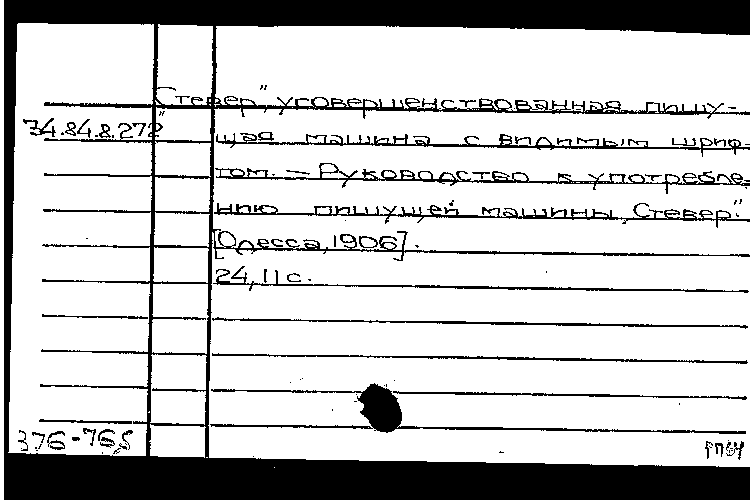 „Стевер", усовершенствованная пишу-
34.84.8.272
щая машина с видимым шриф-
том. — Руководство к употребле-
нию пишущей машины „Стевер".
[Одесса, 1906].
24, 11 с.
376-765